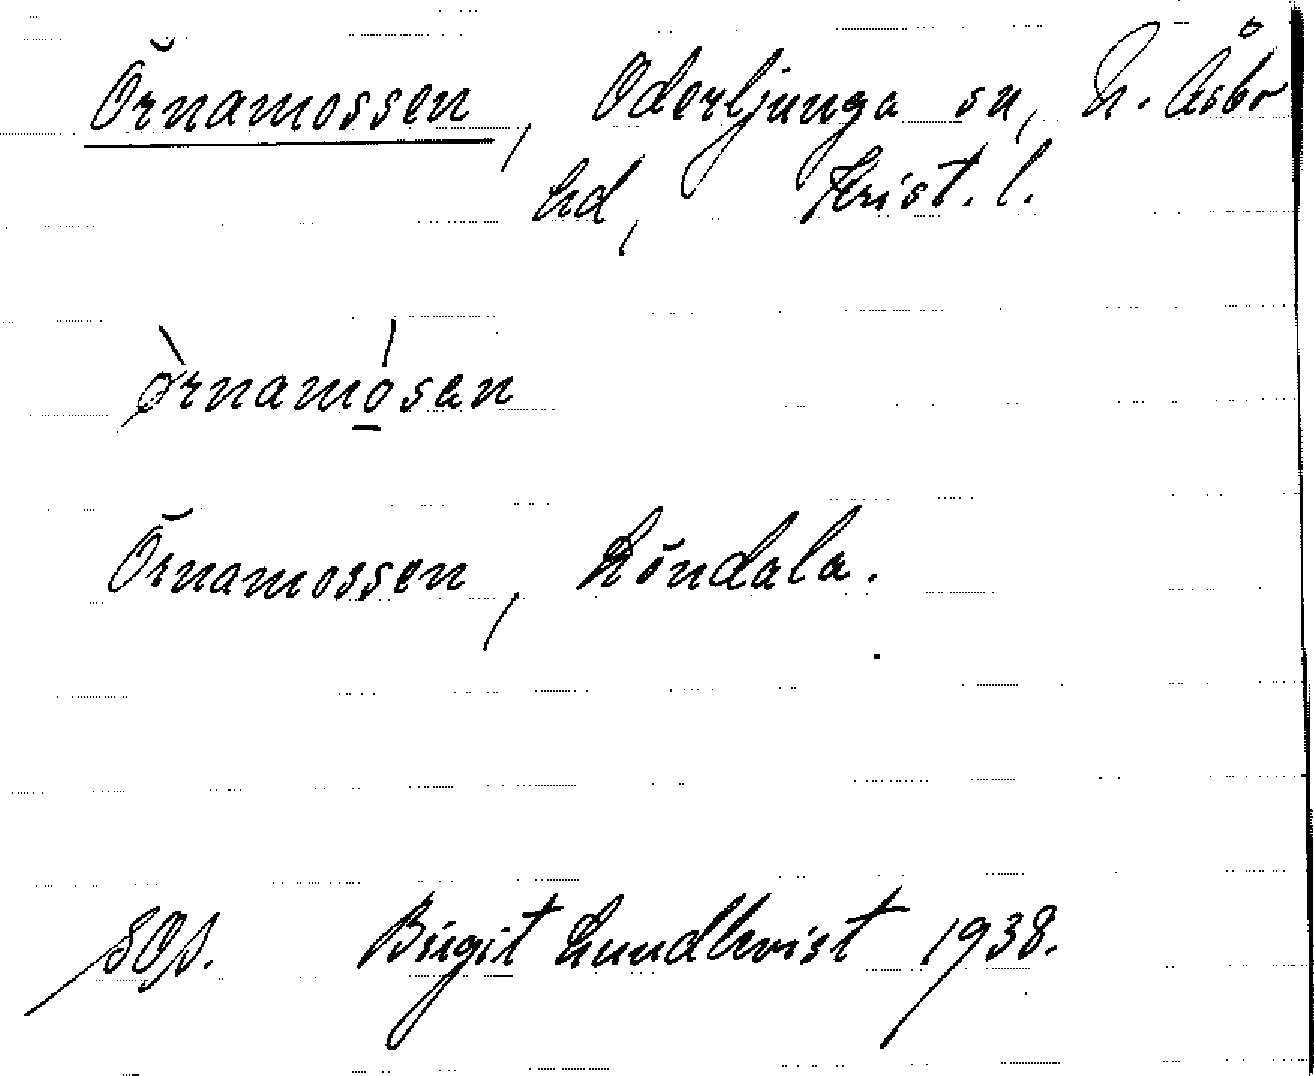 Örnamossen, Oderljunga sn, N. Åsbo
hd, Krist. l.
ø̀rnamó̲san
Örnamossen, Röndala.
Birgit Lundkvist 1938.